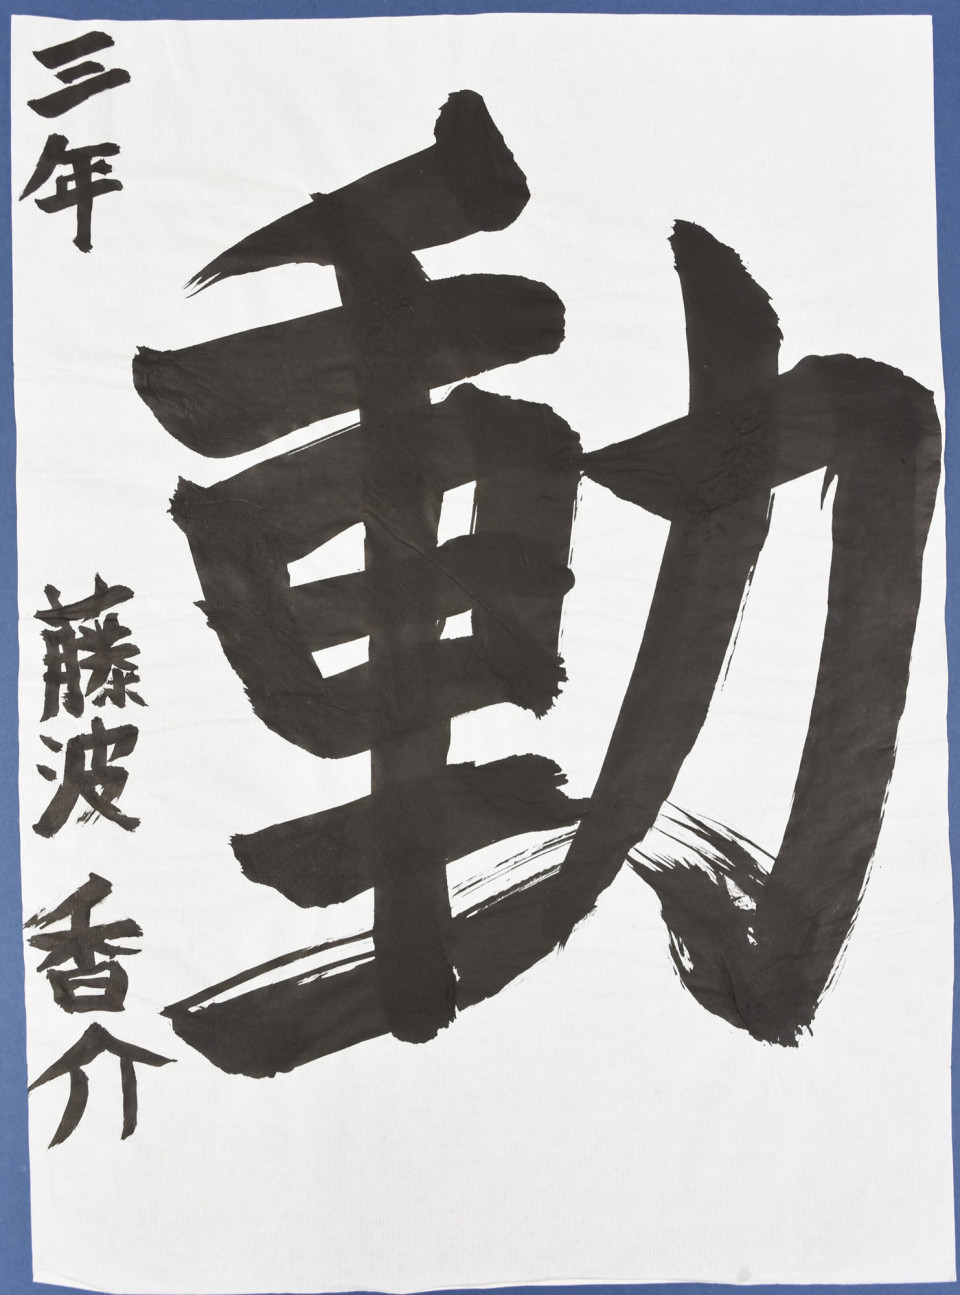 動
三年 藤波香介